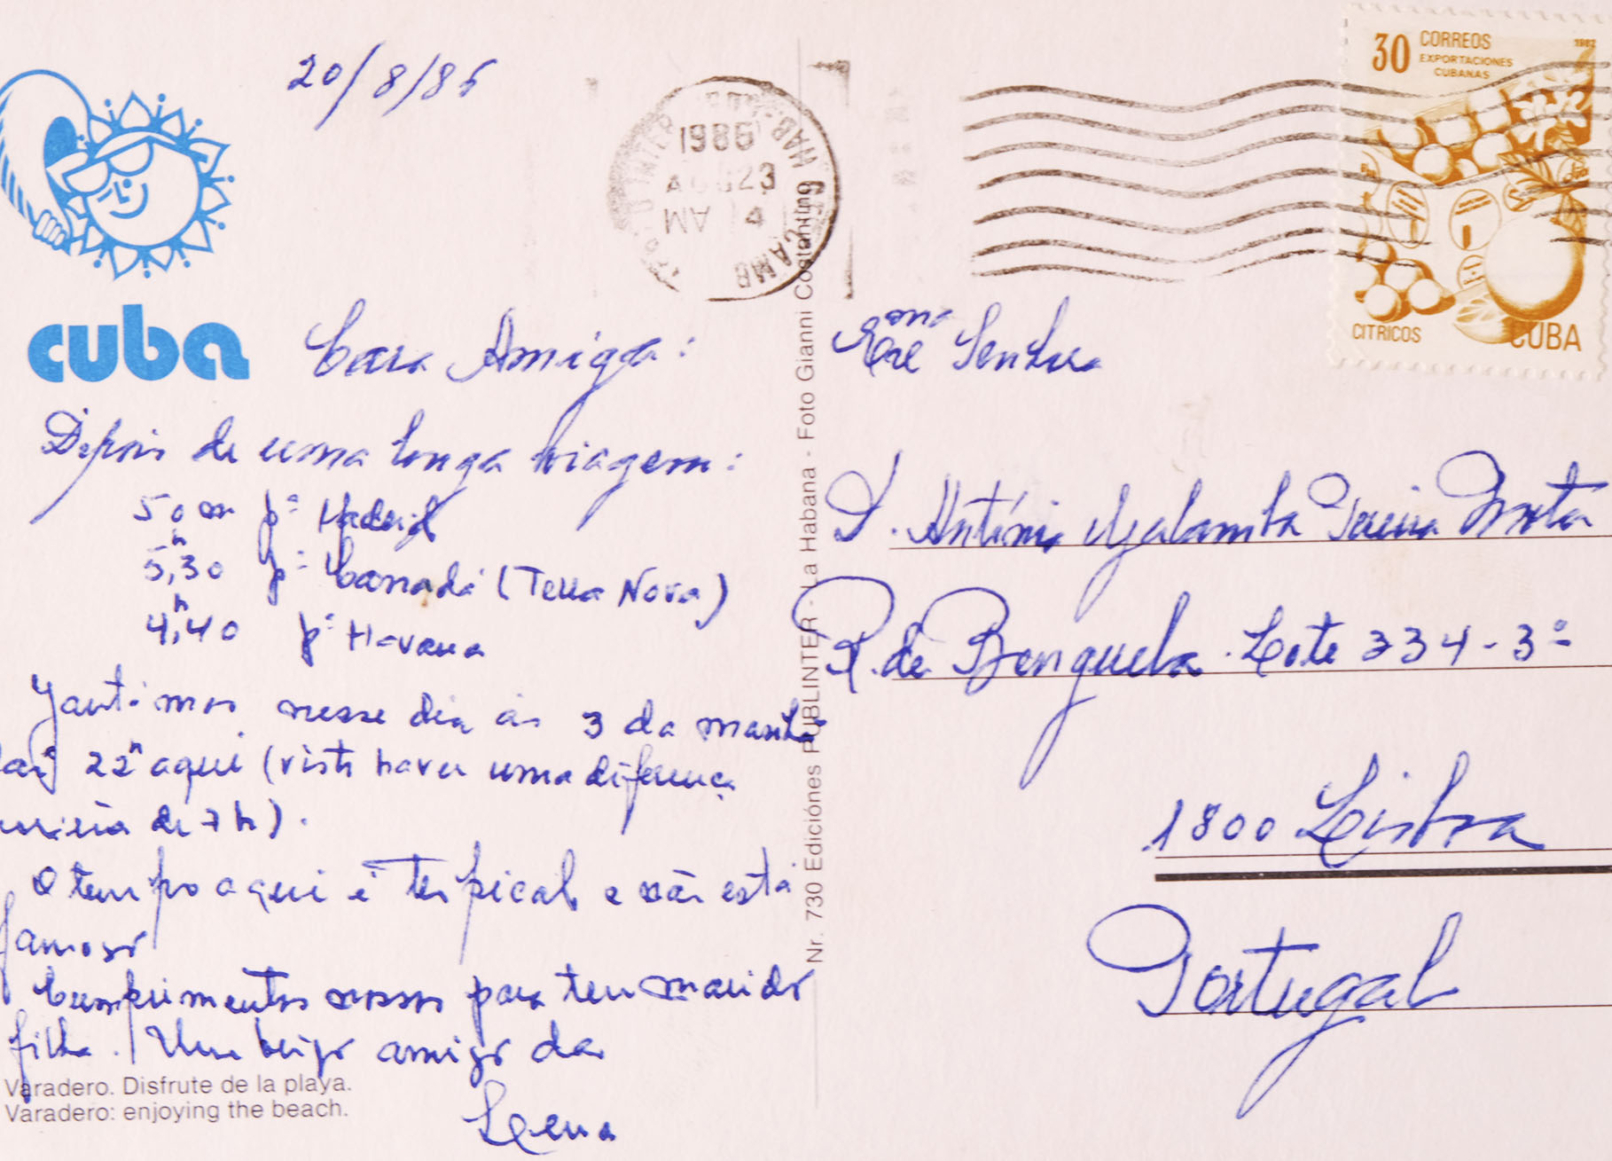 20/8/86
cuba
Cara Amiga:
Depois de uma longa viagem:
50 m pª Madrid
5,30 h pª Canadá (Terra Nova)
4,40 h pª Havana
Jantámos nesse dia às 3 da manhã
22h aqui (visto haver uma diferença
de 7h).
O tempo aqui é tropical e não está
famoso
Cumprimentos nossos para teu marido
filha. Um beijo amigo da
Lena
Varadero. Disfrute de la playa.
Varadero: enjoying the beach.
Nr. 730 Ediciónes PUBLINTER - La Habana - Foto Gianni Costantino
1986
AGO 23
AM 4
30 CORREOS 1982
EXPORTACIONES
CUBANAS
CITRICOS CUBA
Exma Senhora
D. António Pereira Mota
R. de Benguela. Lote 334-3º
1800 Lisboa
Portugal